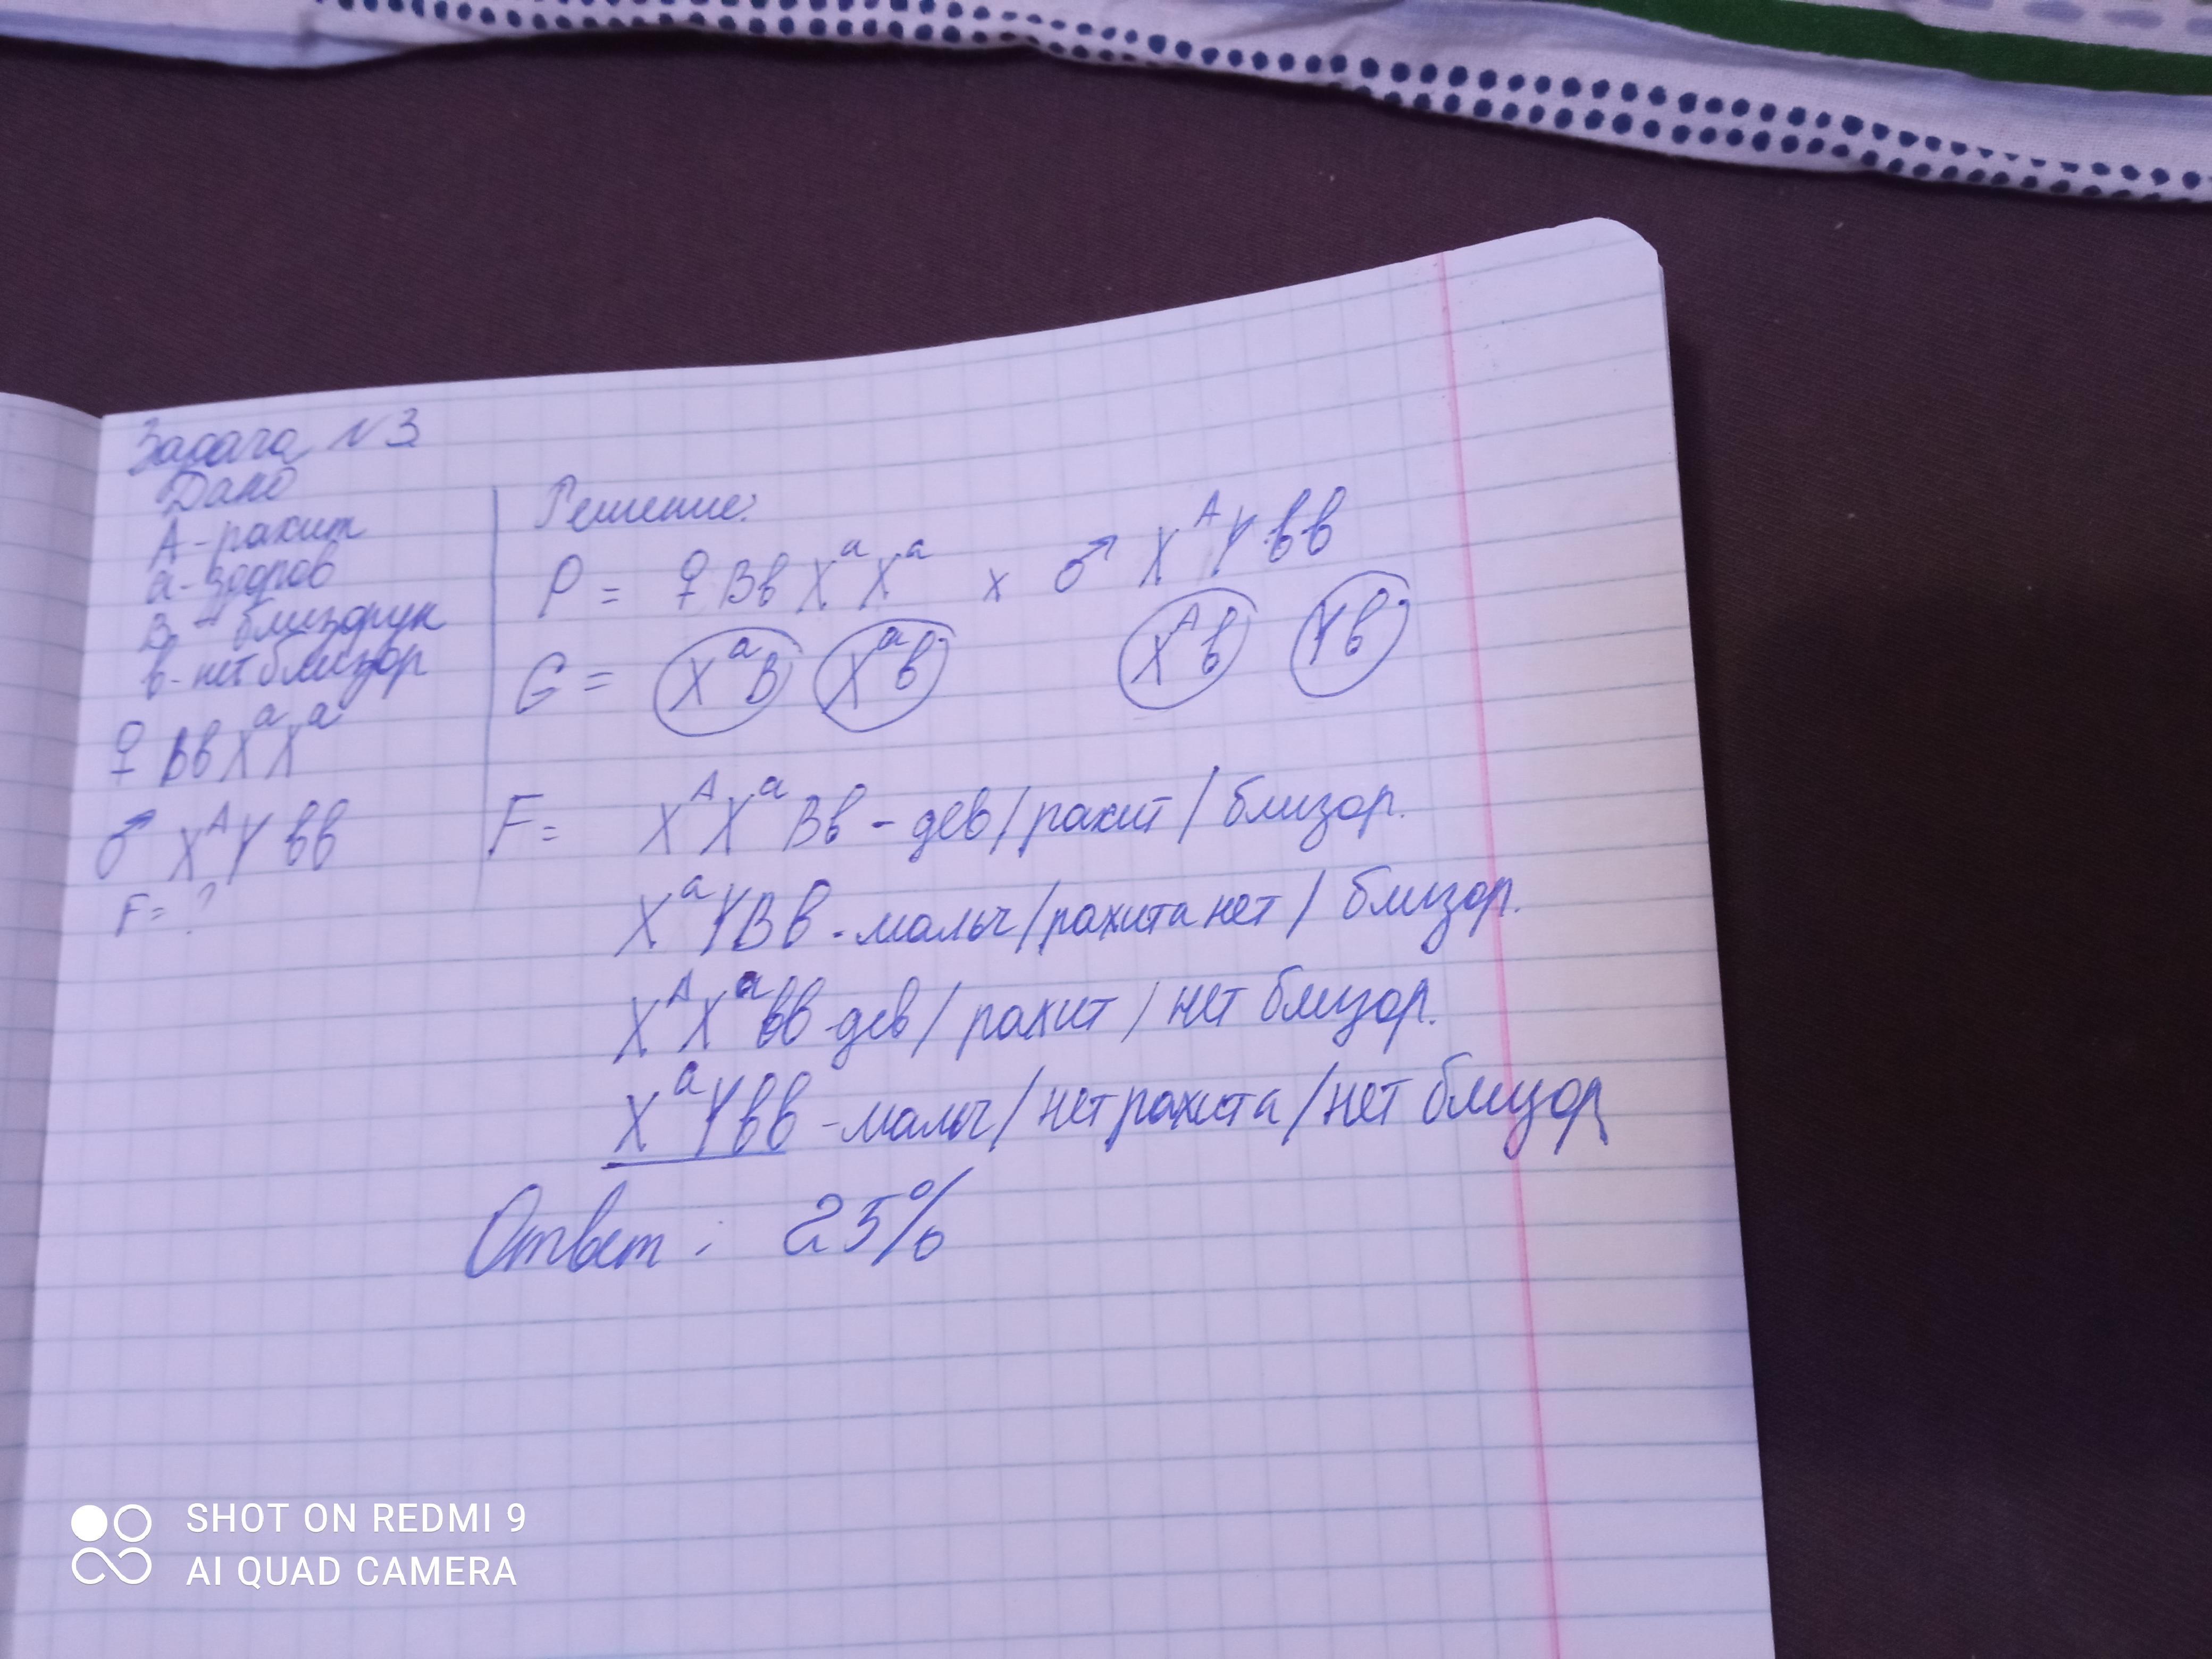 Задача №3
Дано
А - рахит
а - здоров
В - близорук
в - нет близор
♀ Вв XᵃXᵃ
♂ XᴬY вв
F = ?
Решение:
P = ♀ Вв XᵃXᵃ x ♂ XᴬY вв
G = XᵃВ Xᵃв Xᴬв Yв
F = XᴬXᵃ Вв - дев / рахит / близор.
XᵃYВв - мальч / рахита нет / близор.
XᴬXᵃвв - дев / рахит / нет близор.
XᵃYвв - мальч / нет рахита / нет близор
Ответ: 25%
SHOT ON REDMI 9
AI QUAD CAMERA